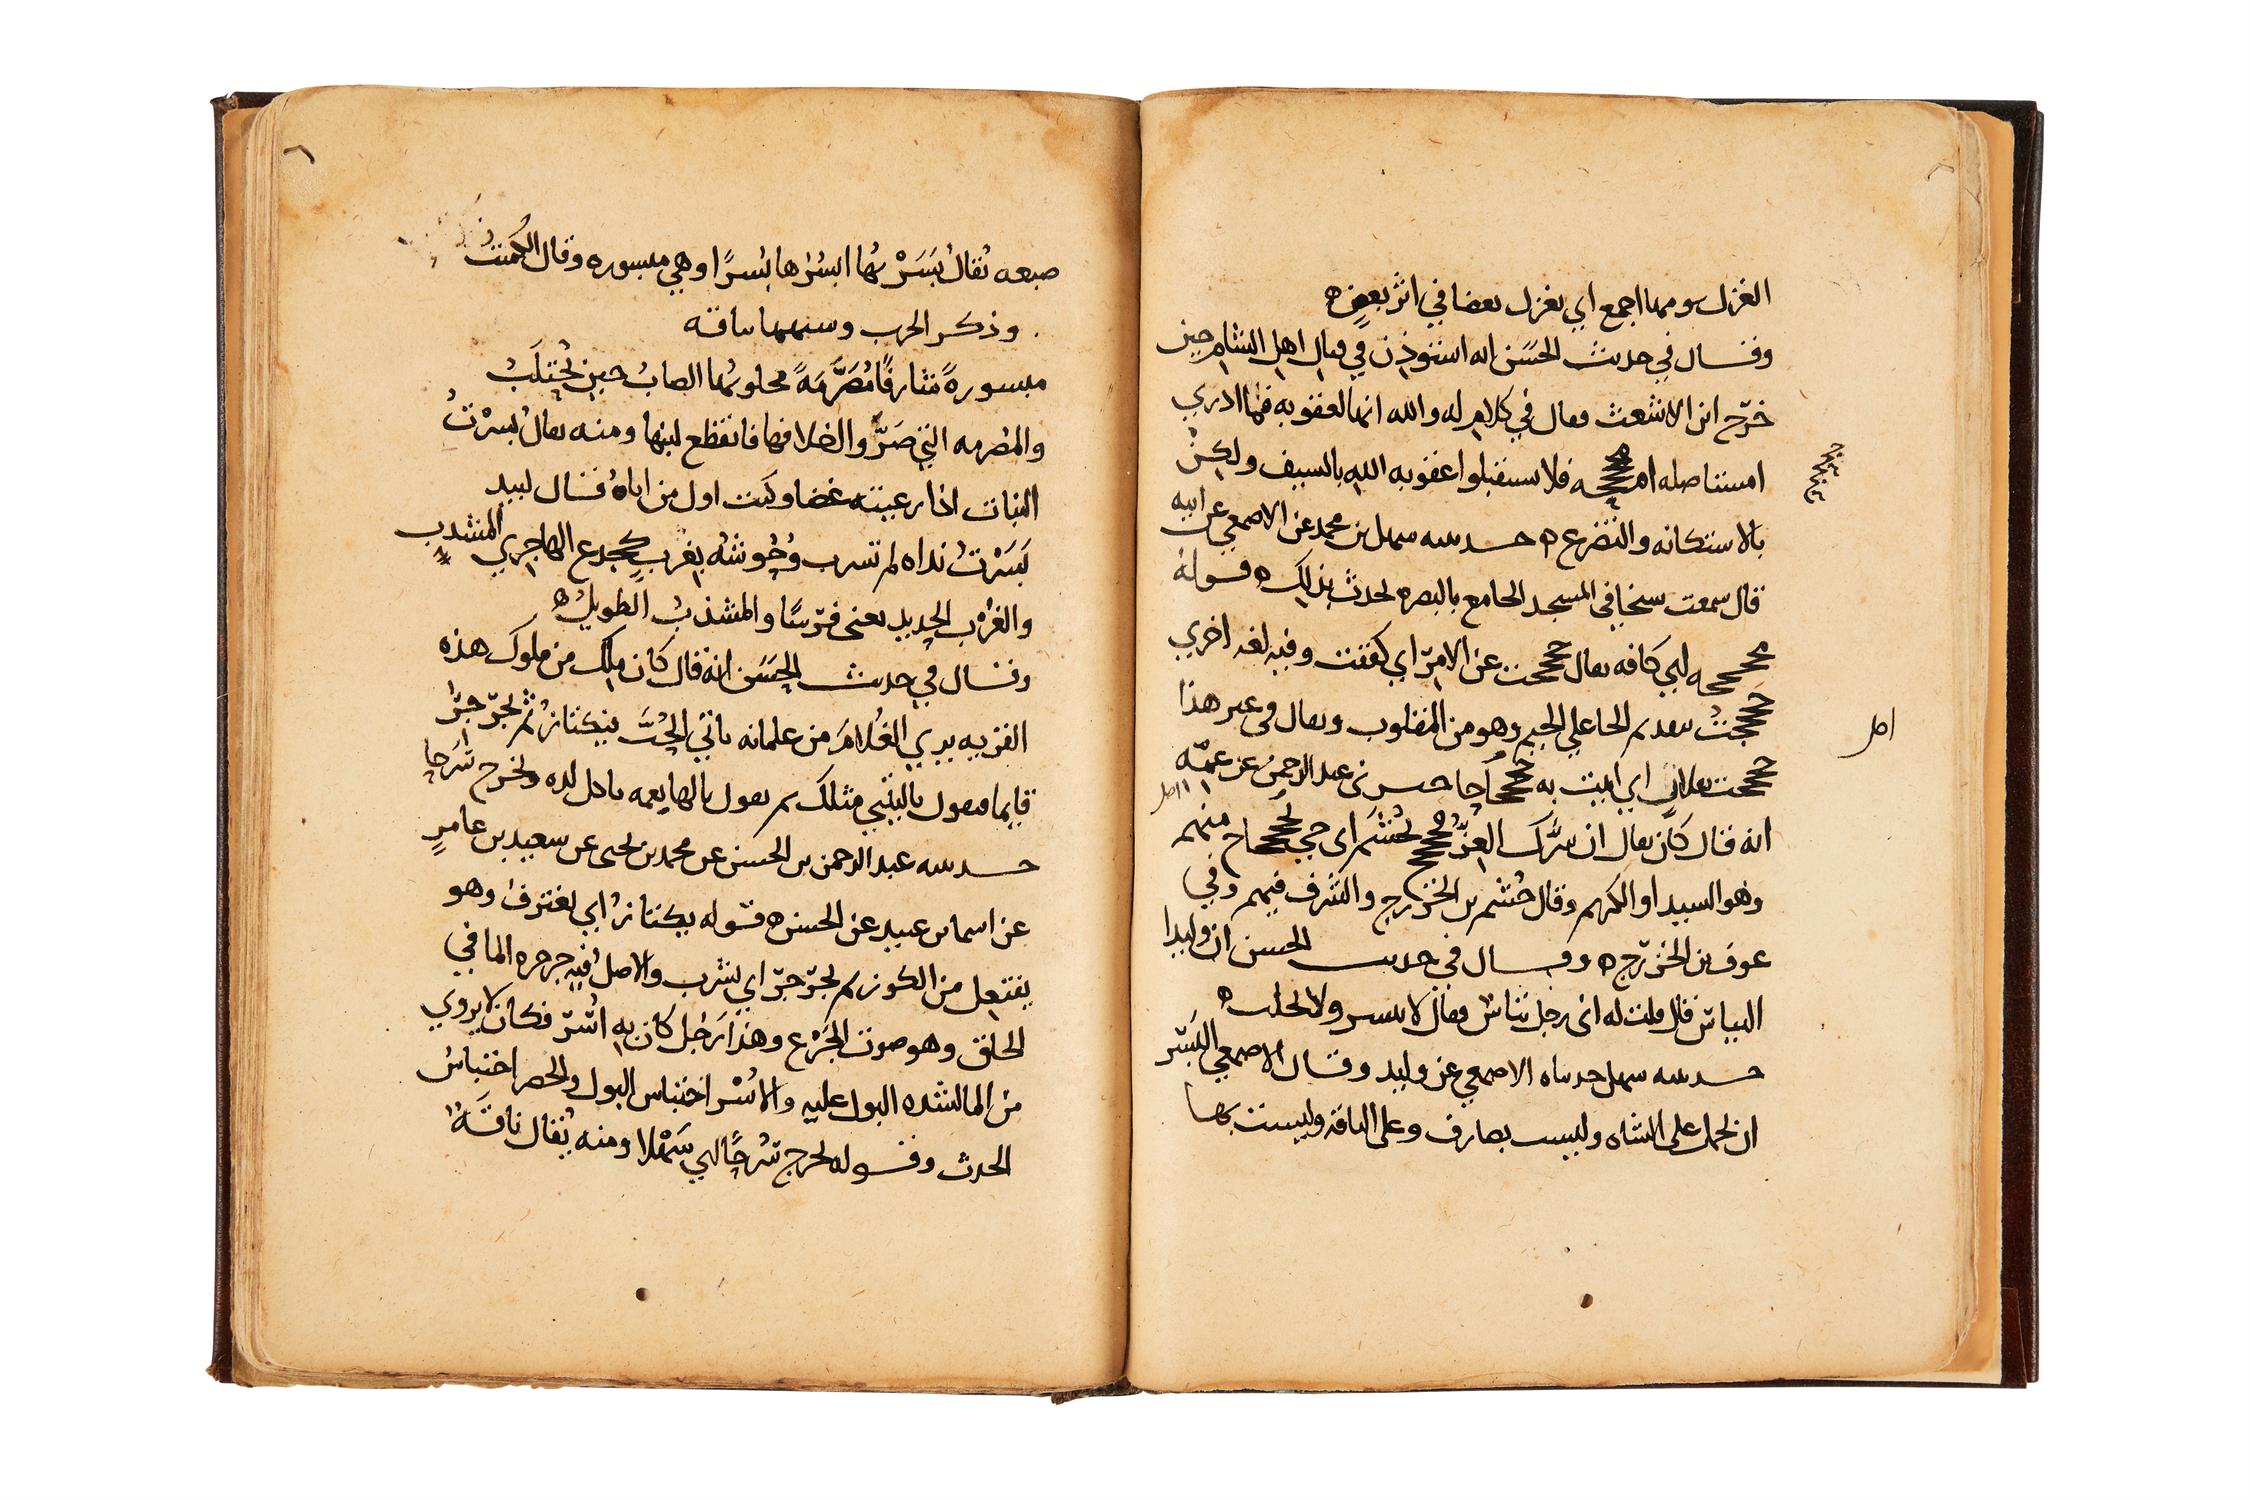 الغزل ومما اجمع اي يغزل بعضا في اثر بعض ه
وقال في حديث الحسن انه استؤذن في قتال اهل الشام حين
خرج ابن الاشعث فقال في كلام له والله انها لعقوبه فما ادري
امستاصله ام محجحجه فلا تستقبلوا عقوبه الله بالسيف ولكن
بالاستكانه والتضرع ه حدثنيه سهل بن محمد عن الاصمعي عن ابيه
قال سمعت شيخا في المسجد الجامع بالبصره يحدث بذلك ه قوله
محجحجه اي كافه يقال حجحجت عن الامر اي كففت وفيه لغه اخري
جحجحت بتقديم الجيم وهو من المقلوب ويقال في غير هذا
جحجحت بفلان اي اتيت به جحجاحا حدثني عبد الرحمن عن عمه
انه قال كان يقال ان سرك العز فجحجح بجشم اي جي بجحجاح منهم
وهو السيد او الكريم وقال جشم بن الخزرج والشرف فيهم وفي
عوف بن الخزرج ه وقال في حديث الحسن ان وليدا
التياس قال قلت له اني رجل تياس فقال لا تبسر ولا تحلب ه
حدثنيه سهل حدثناه الاصمعي عن وليد وقال الاصمعي البسر
ان يحمل على الشاه وليست بصارف وعلى الناقه وليست بها
اصل
ضبعه يقال بسرتها ابسرها بسرا وهي مبسوره وقال الكميت
وذكر الحرب وشبهها بناقه
مبسورة شارفا مصرمة محلوبها الصاب حين يحتلب
والمصرمه التي صروا اخلافها فانقطع لبنها ومنه يقال بسرت
النبات اذا رعيته غضا وكنت اول من اتاه قال لبيد
بسرت نداه لم تسرب وحوشه بغرب كجذع الهاجري المشذب
والغرب الحديد يعني فرسا والمشذب الطويل ه
وقال في حديث الحسن انه قال كان ملك من ملوك هذه
القريه يري الغلام من غلمانه ياتي الحب فيكتاز ثم يجرجر
قايما فيقول ياليتني مثلك ثم يقول يالها نعمه تاكل لذه وتخرج سرحا
حدثنيه عبد الرحمن بن الحسن عن محمد بن يحيى عن سعيد بن عامر
عن اسما بن عبيد عن الحسن ه قوله يكتاز اي يغترف وهو
يفتعل من الكوز ثم يجرجر اي يشرب والاصل فيه جرجره الما في
الحلق وهو صوت الجرع وهذا رجل كان به اسر فكان لا يروي
من الما لشده البول عليه والاسر احتباس البول والحصر احتباس
الحدث وقوله يخرج سرحا اي سهلا ومنه يقال ناقة